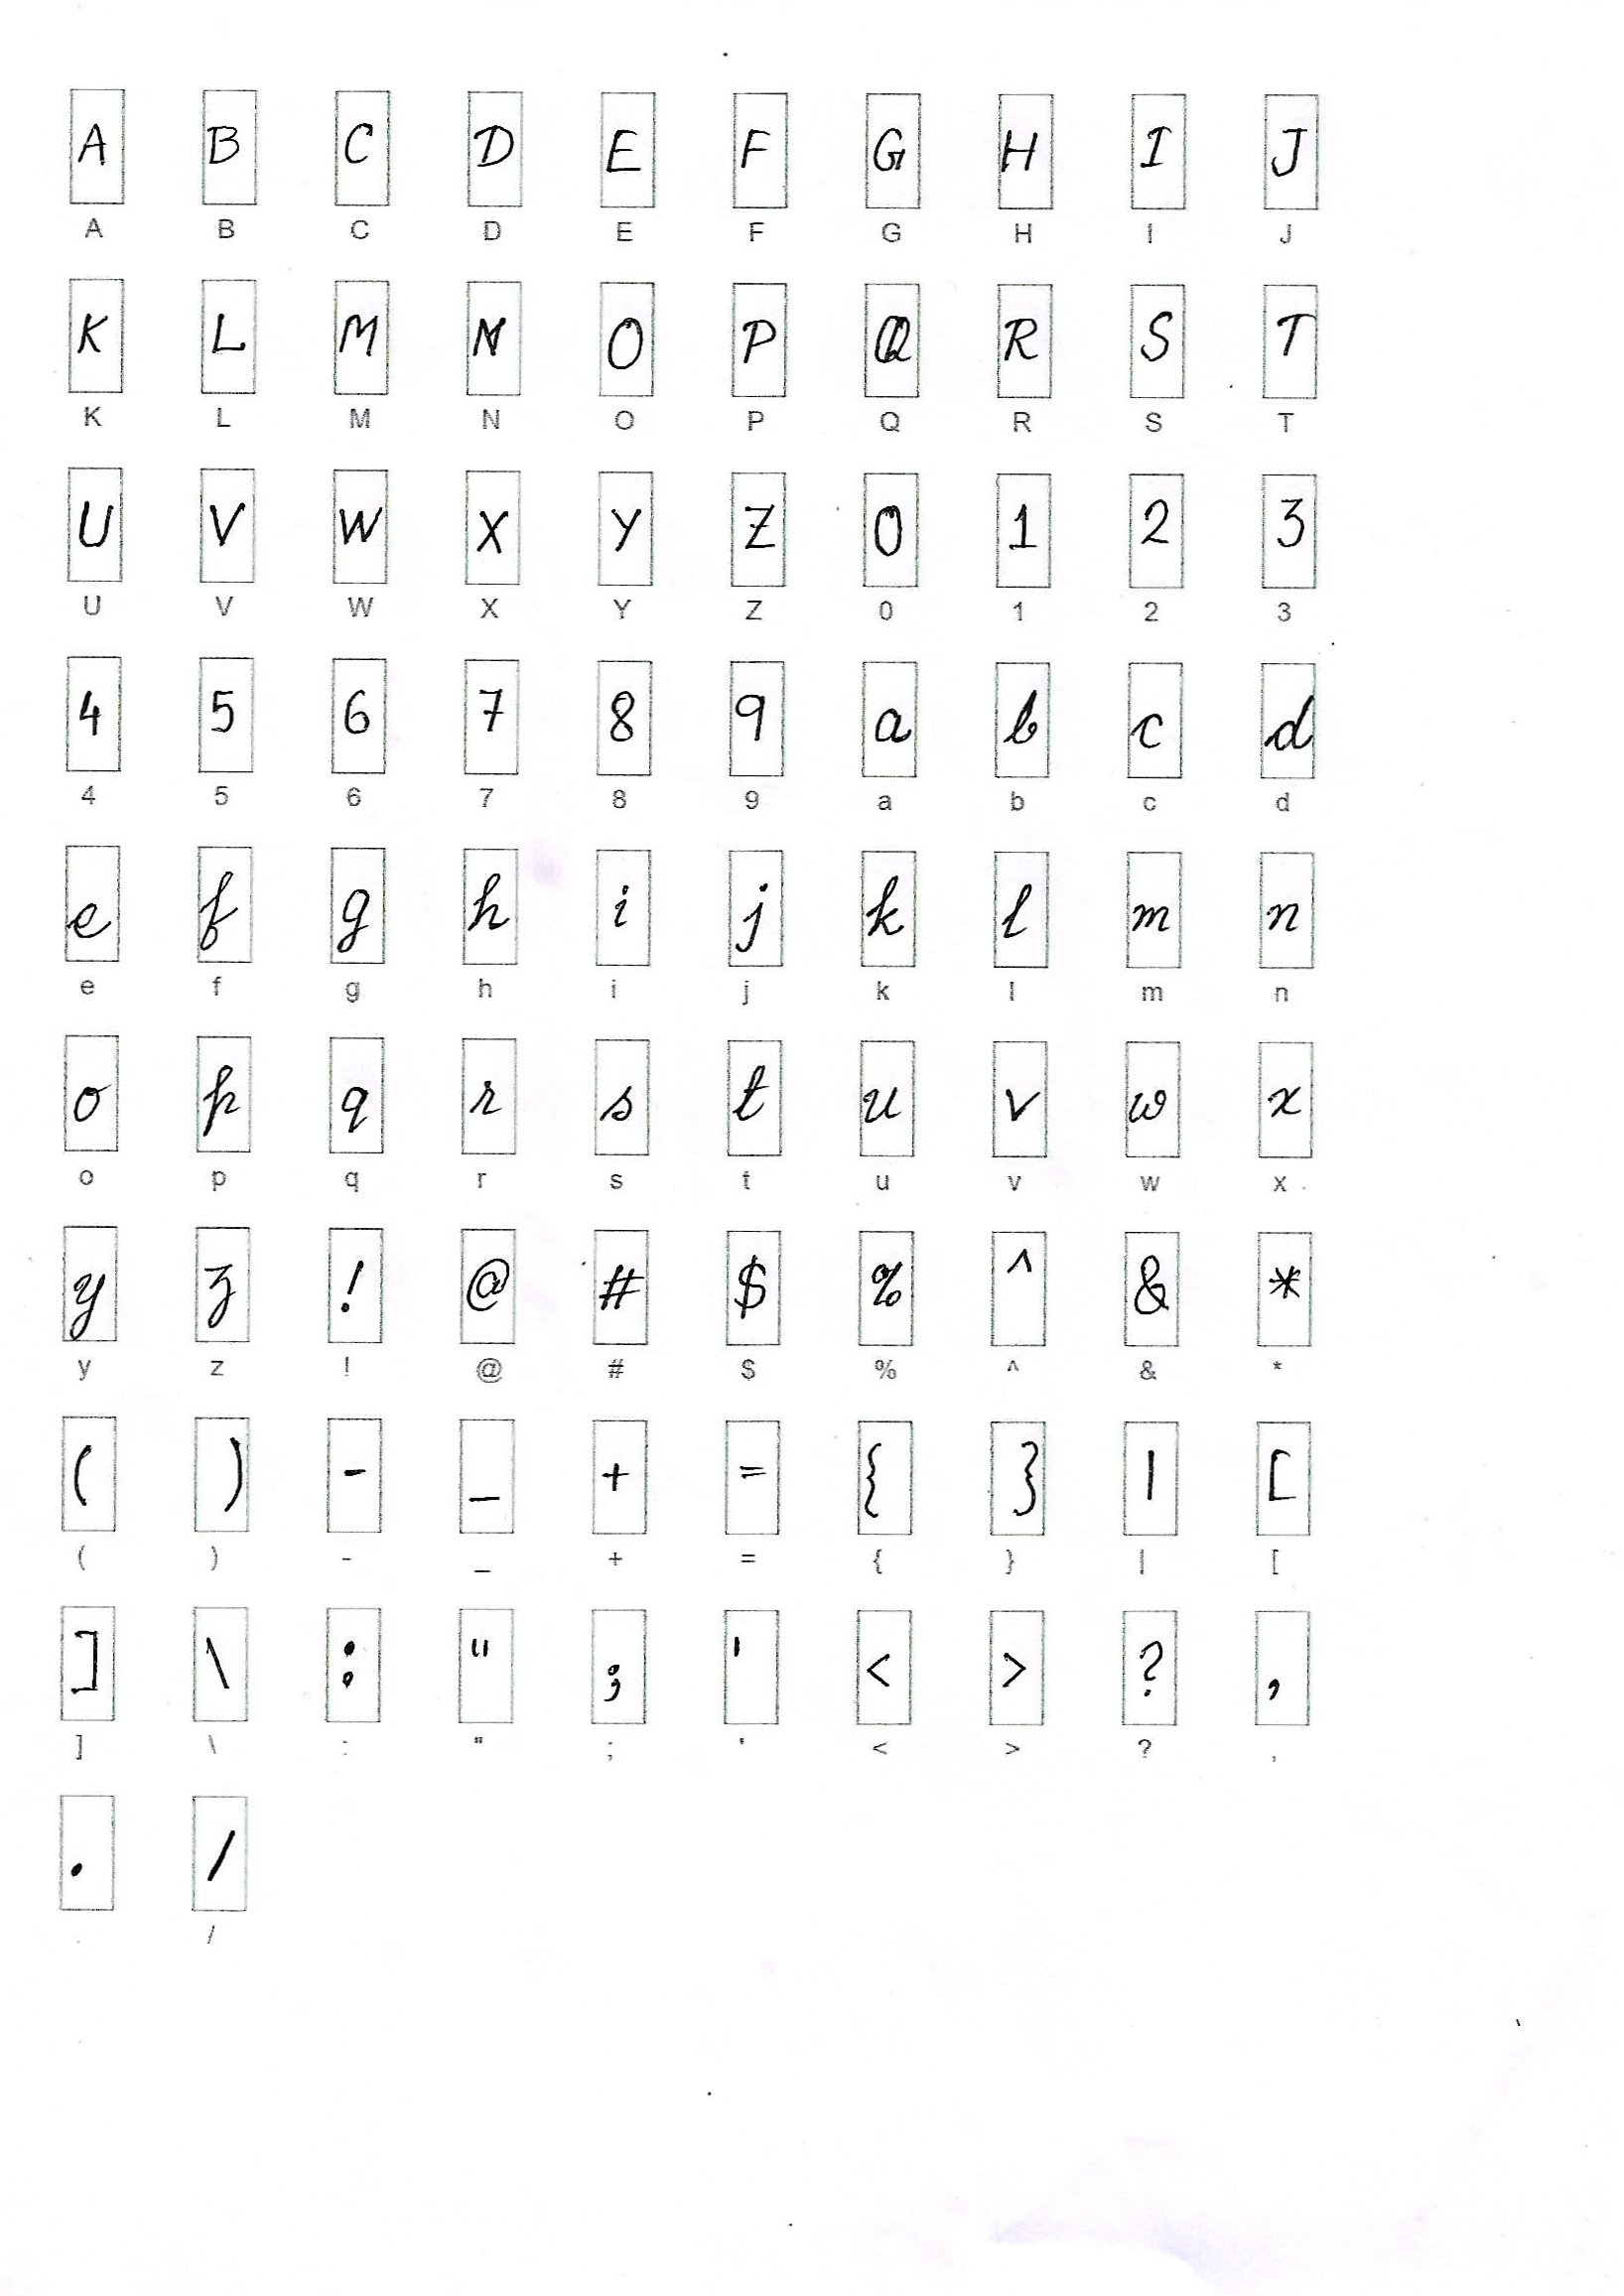 A B C D E F G H I J
A B C D E F G H I J
K L M N O P Q R S T
K L M N O P Q R S T
U V W X Y Z 0 1 2 3
U V W X Y Z 0 1 2 3
4 5 6 7 8 9 a b c d
4 5 6 7 8 9 a b c d
e f g h i j k l m n
e f g h i j k l m n
o p q r s t u v w x
o p q r s t u v w x
y z ! @ # $ % ^ & *
y z ! @ # $ % ^ & *
( ) - _ + = { } | [
( ) - _ + = { } | [
] \ : " ; ' < > ? ,
] \ : " ; ' < > ? ,
. /
. /